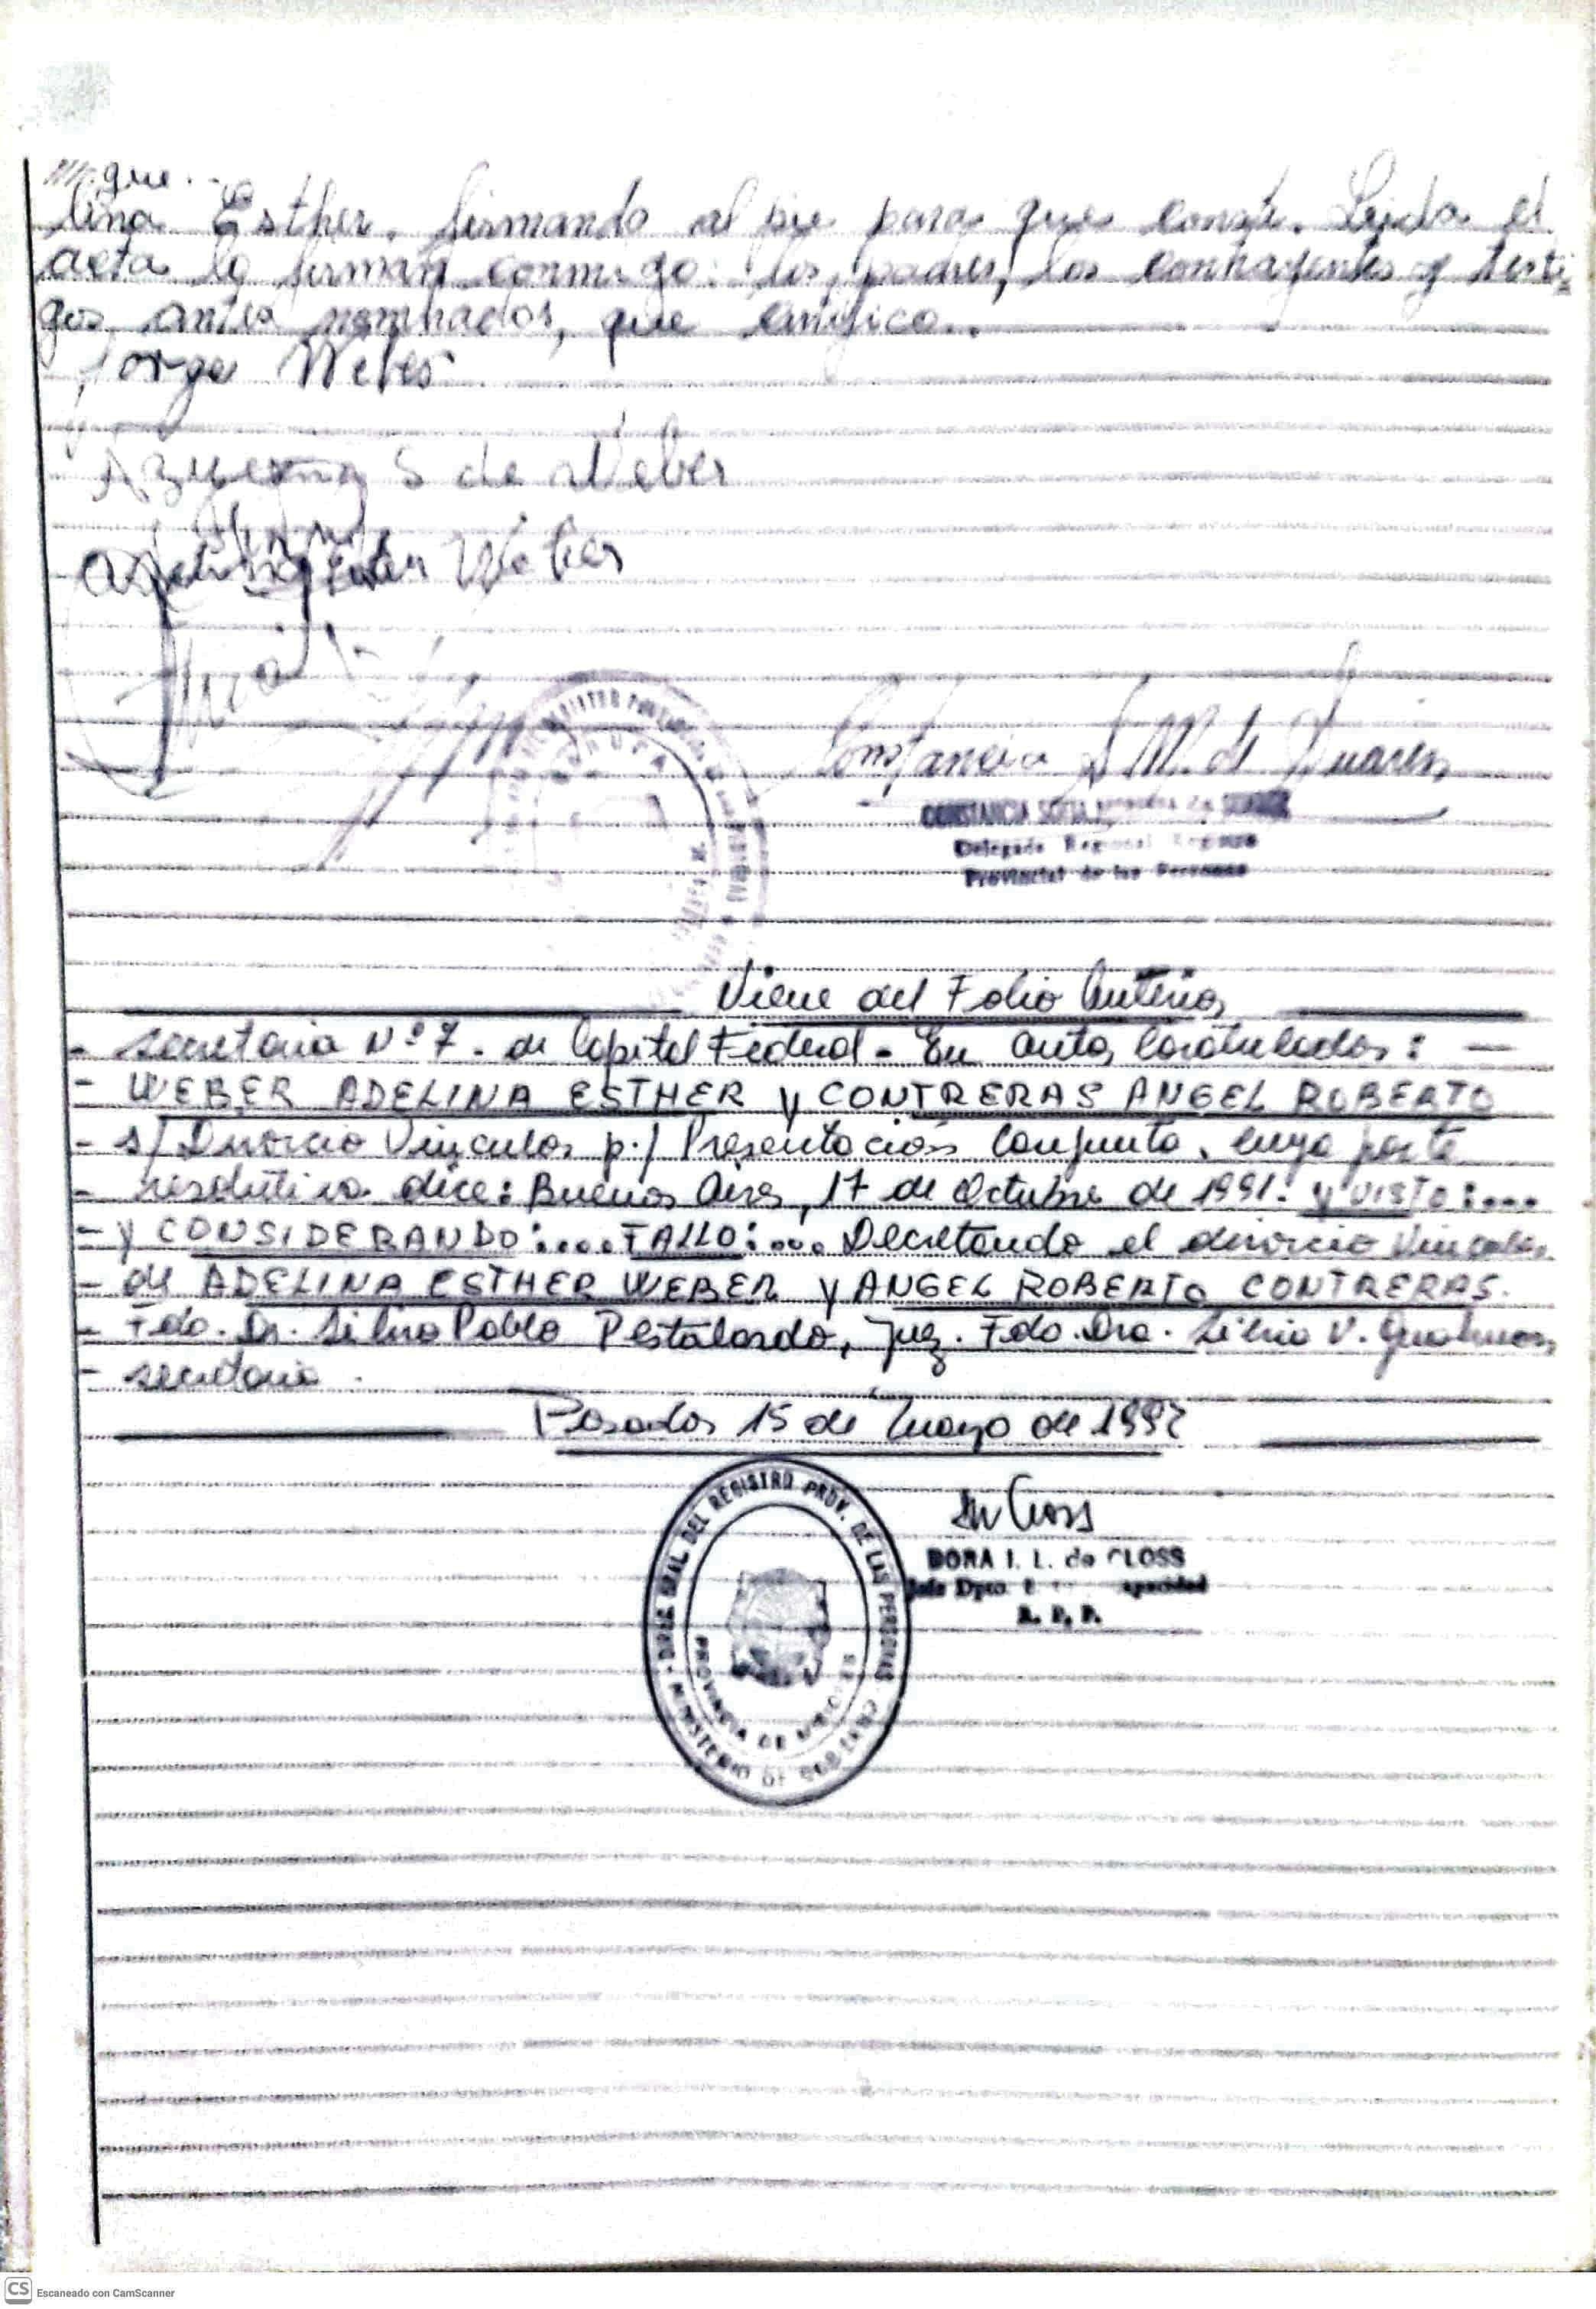 que...
lina Esther, firmando al pie para que conste. Leida el
acta la firman conmigo: los padres, los contrayentes y testi=
gos antes nominados, que certifico..
Jorge Weber
Azucena S de Weber
Adelina Esther Weber
Constancia S M. de Suarez
CONSTANCIA SOFIA DE SUAREZ
Delegada Regional Registro
Provincial de las Personas
Viene del Folio Anterior
- secretaria Nº 7. de Capital Federal - En autos Caratulados: -
- WEBER ADELINA ESTHER y CONTRERAS ANGEL ROBERTO
- s/ Divorcio Vincular p./ Presentación Conjunta, cuya parte
- resolutiva dice: Buenos Aires, 17 de Octubre de 1991. Y VISTO:...
- y CONSIDERANDO:....FALLO:... Decretando el divorcio Vincular
- de ADELINA ESTHER WEBER y ANGEL ROBERTO CONTRERAS.
- Fdo. Dr. Silvio Pablo Pestalardo, Juez. Fdo. Dra. Silvia V.
- secretaria.
Posadas 15 de mayo de 1992
DIREC. GRAL. DEL REGISTRO PROV. DE LAS PERSONAS
PROVINCIA DE MISIONES
MINISTERIO DE GOBIERNO
DORA I. L. de CLOSS
Jefe Dpto.
R. P. P.
CS Escaneado con CamScanner